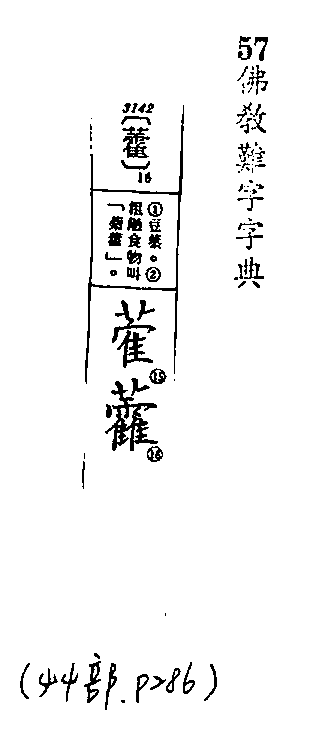 57佛教難字字典
3142
〔藿〕16
①豆葉。②
粗陋食物叫
「藜藿」。
藿⑮
⑯
(艸部.P286)